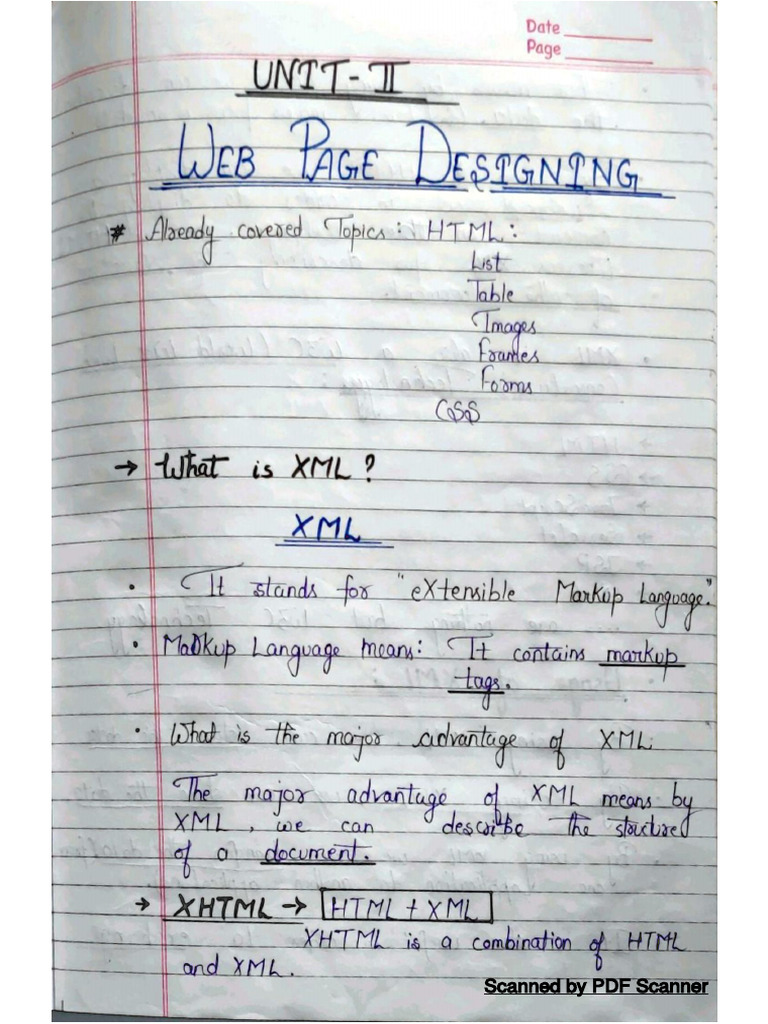 Date
Page
UNIT-II
WEB PAGE DESIGNING
* Already covered Topics: HTML:
List
Table
Images
Frames
Forms
CSS
→ What is XML?
XML
• It stands for "eXtensible Markup Language."
• Markup Language means: It contains markup
tags.
• What is the major advantage of XML
The major advantage of XML means by
XML, we can describe the structured
of a document.
→ XHTML → HTML + XML
XHTML is a combination of HTML
and XML.
Scanned by PDF Scanner